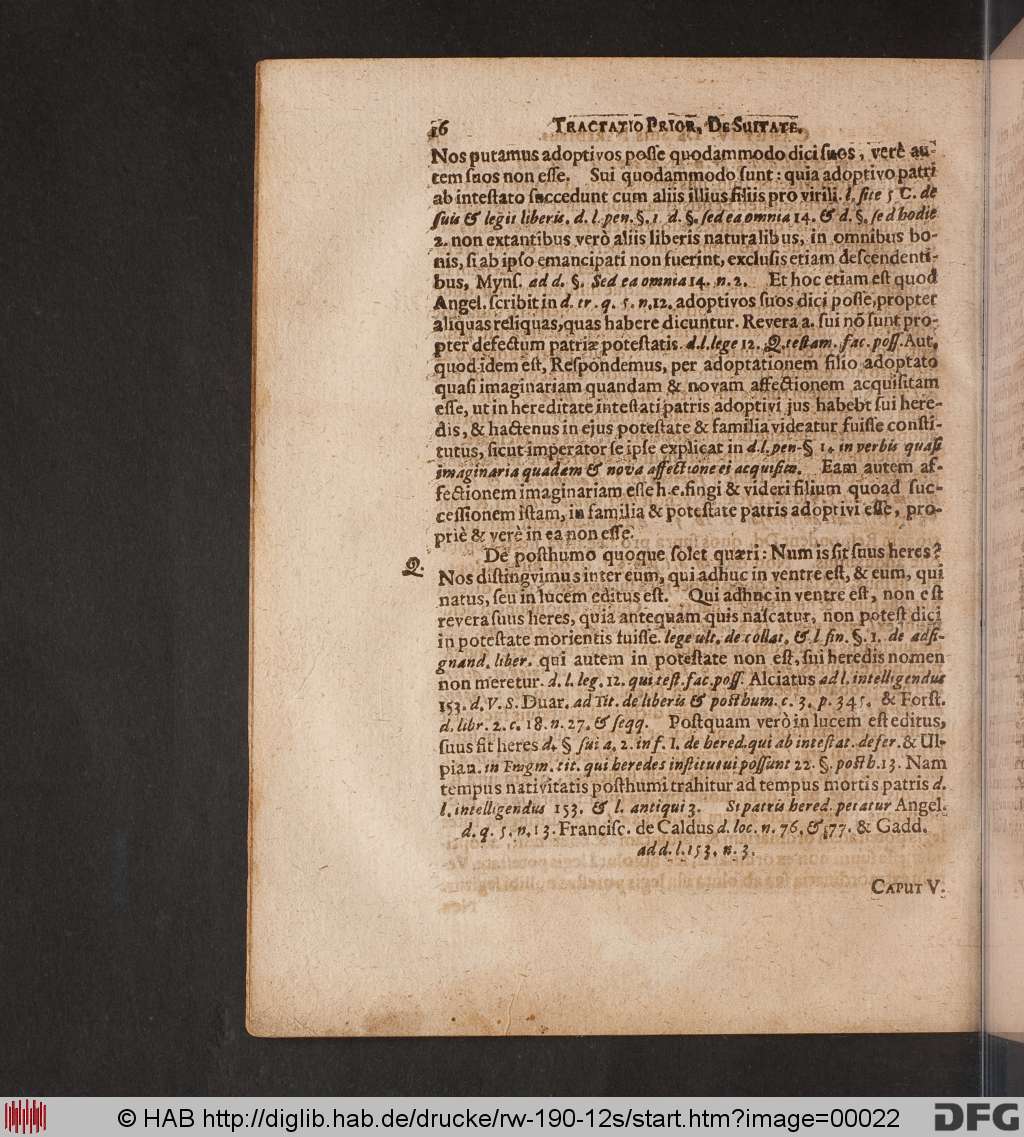 16 TRACTATIO PRIOR, DE SUITATE.
Nos putamus adoptivos poſſe quodammodo dici ſuos, verè au-
tem ſuos non eſſe. Sui quodammodo ſunt: quia adoptivo patri
ab inteſtato ſuccedunt cum aliis illius filiis pro virili. l. ſite 5 C. de
ſuis & legit liberis. d. l. pen. §. 1 d. §. ſed ea omnia 14. & d. §. ſed hodie
2. non extantibus verò aliis liberis naturalibus, in omnibus bo-
nis, ſi ab ipſo emancipati non fuerint, excluſis etiam deſcendenti-
bus, Mynſ. ad d. §. Sed ea omnia 14. n. 2. Et hoc etiam eſt quod
Angel. ſcribit in d. tr. q. 5. n. 12. adoptivos ſuos dici poſſe, propter
aliquas reliquas, quas habere dicuntur. Revera a. ſui nõ ſunt pro-
pter defectum patriæ poteſtatis. d. l. lege 12. Q. teſtam. fac. poſſ. Aut,
quod idem eſt, Reſpondemus, per adoptationem filio adoptato
quaſi imaginariam quandam & novam affectionem acquiſitam
eſſe, ut in hereditate inteſtati patris adoptivi jus habebt ſui here-
dis, & hactenus in ejus poteſtate & familia videatur fuiſſe conſti-
tutus, ſicut imperator ſe ipſe explicat in d. l. pen. § 1. in verbis quaſi
imaginaria quadam & nova affectione ei acquiſita. Eam autem af-
fectionem imaginariam eſſe h. e. fingi & videri filium quoad ſuc-
ceſſionem iſtam, in familia & poteſtate patris adoptivi eſſe, pro-
priè & verè in ea non eſſe.
Q. De poſthumo quoque ſolet quæri: Num is ſit ſuus heres?
Nos diſtingvimus inter eum, qui adhuc in ventre eſt, & eum, qui
natus, ſeu in lucem editus eſt. Qui adhuc in ventre eſt, non eſt
revera ſuus heres, quia antequam quis naſcatur, non poteſt dici
in poteſtate morientis fuiſſe. lege ult. de collat. & l fin. §. 1. de adſi-
gnand. liber. qui autem in poteſtate non eſt, ſui heredis nomen
non meretur. d. l. leg. 12. qui teſt. fac. poſſ. Alciatus ad l. intelligendus
153. d. V. S. Duar. ad Tit. de liberis & poſthum. c. 3. p. 345. & Forſt.
d. libr. 2. c. 18. n. 27. & ſeqq. Poſtquam verò in lucem eſt editus,
ſuus fit heres d. § ſui a. 2. inf. I. de hered. qui ab inteſtat. defer. & Ul-
pian. in Fragm. tit. qui heredes inſtitutui poſſunt 22. §. poſth. 13. Nam
tempus nativitatis poſthumi trahitur ad tempus mortis patris d.
l. intelligendus 153. & l. antiqui 3. Si patris hered. petatur Angel.
d. q. 5. n. 13. Franciſc. de Caldus d. loc. n. 76. & 77. & Gadd.
ad d. l. 153. n. 3.
CAPUT V.
© HAB http://diglib.hab.de/drucke/rw-190-12s/start.htm?image=00022
DFG